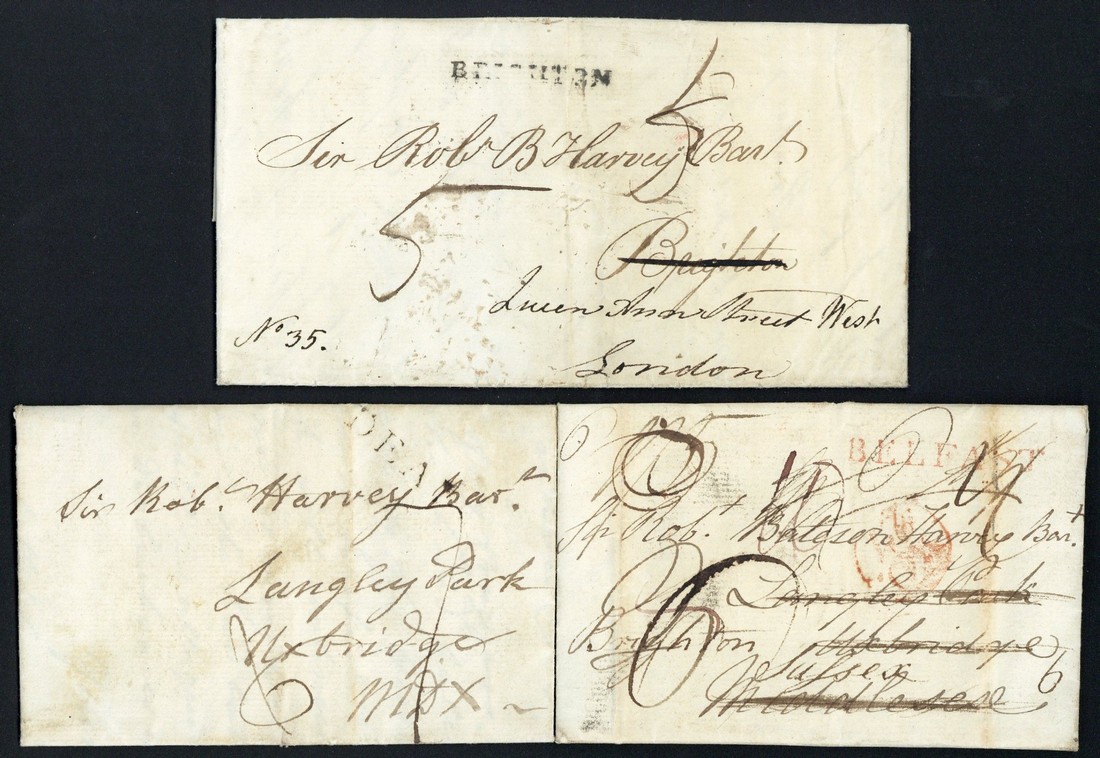 BRIGHTON
Sir Robt B Harvey Bart.
5
Brighton
Queen Ann Street West
No 35.
London
DEA
Sir Robt Harvey Bart.
Langley Park
Uxbridge
MDX
BELFAST
Sir Robt Bateson Harvey Bart
Langley Park
Brighton Uxbridge
Sussex
6
Middlesex